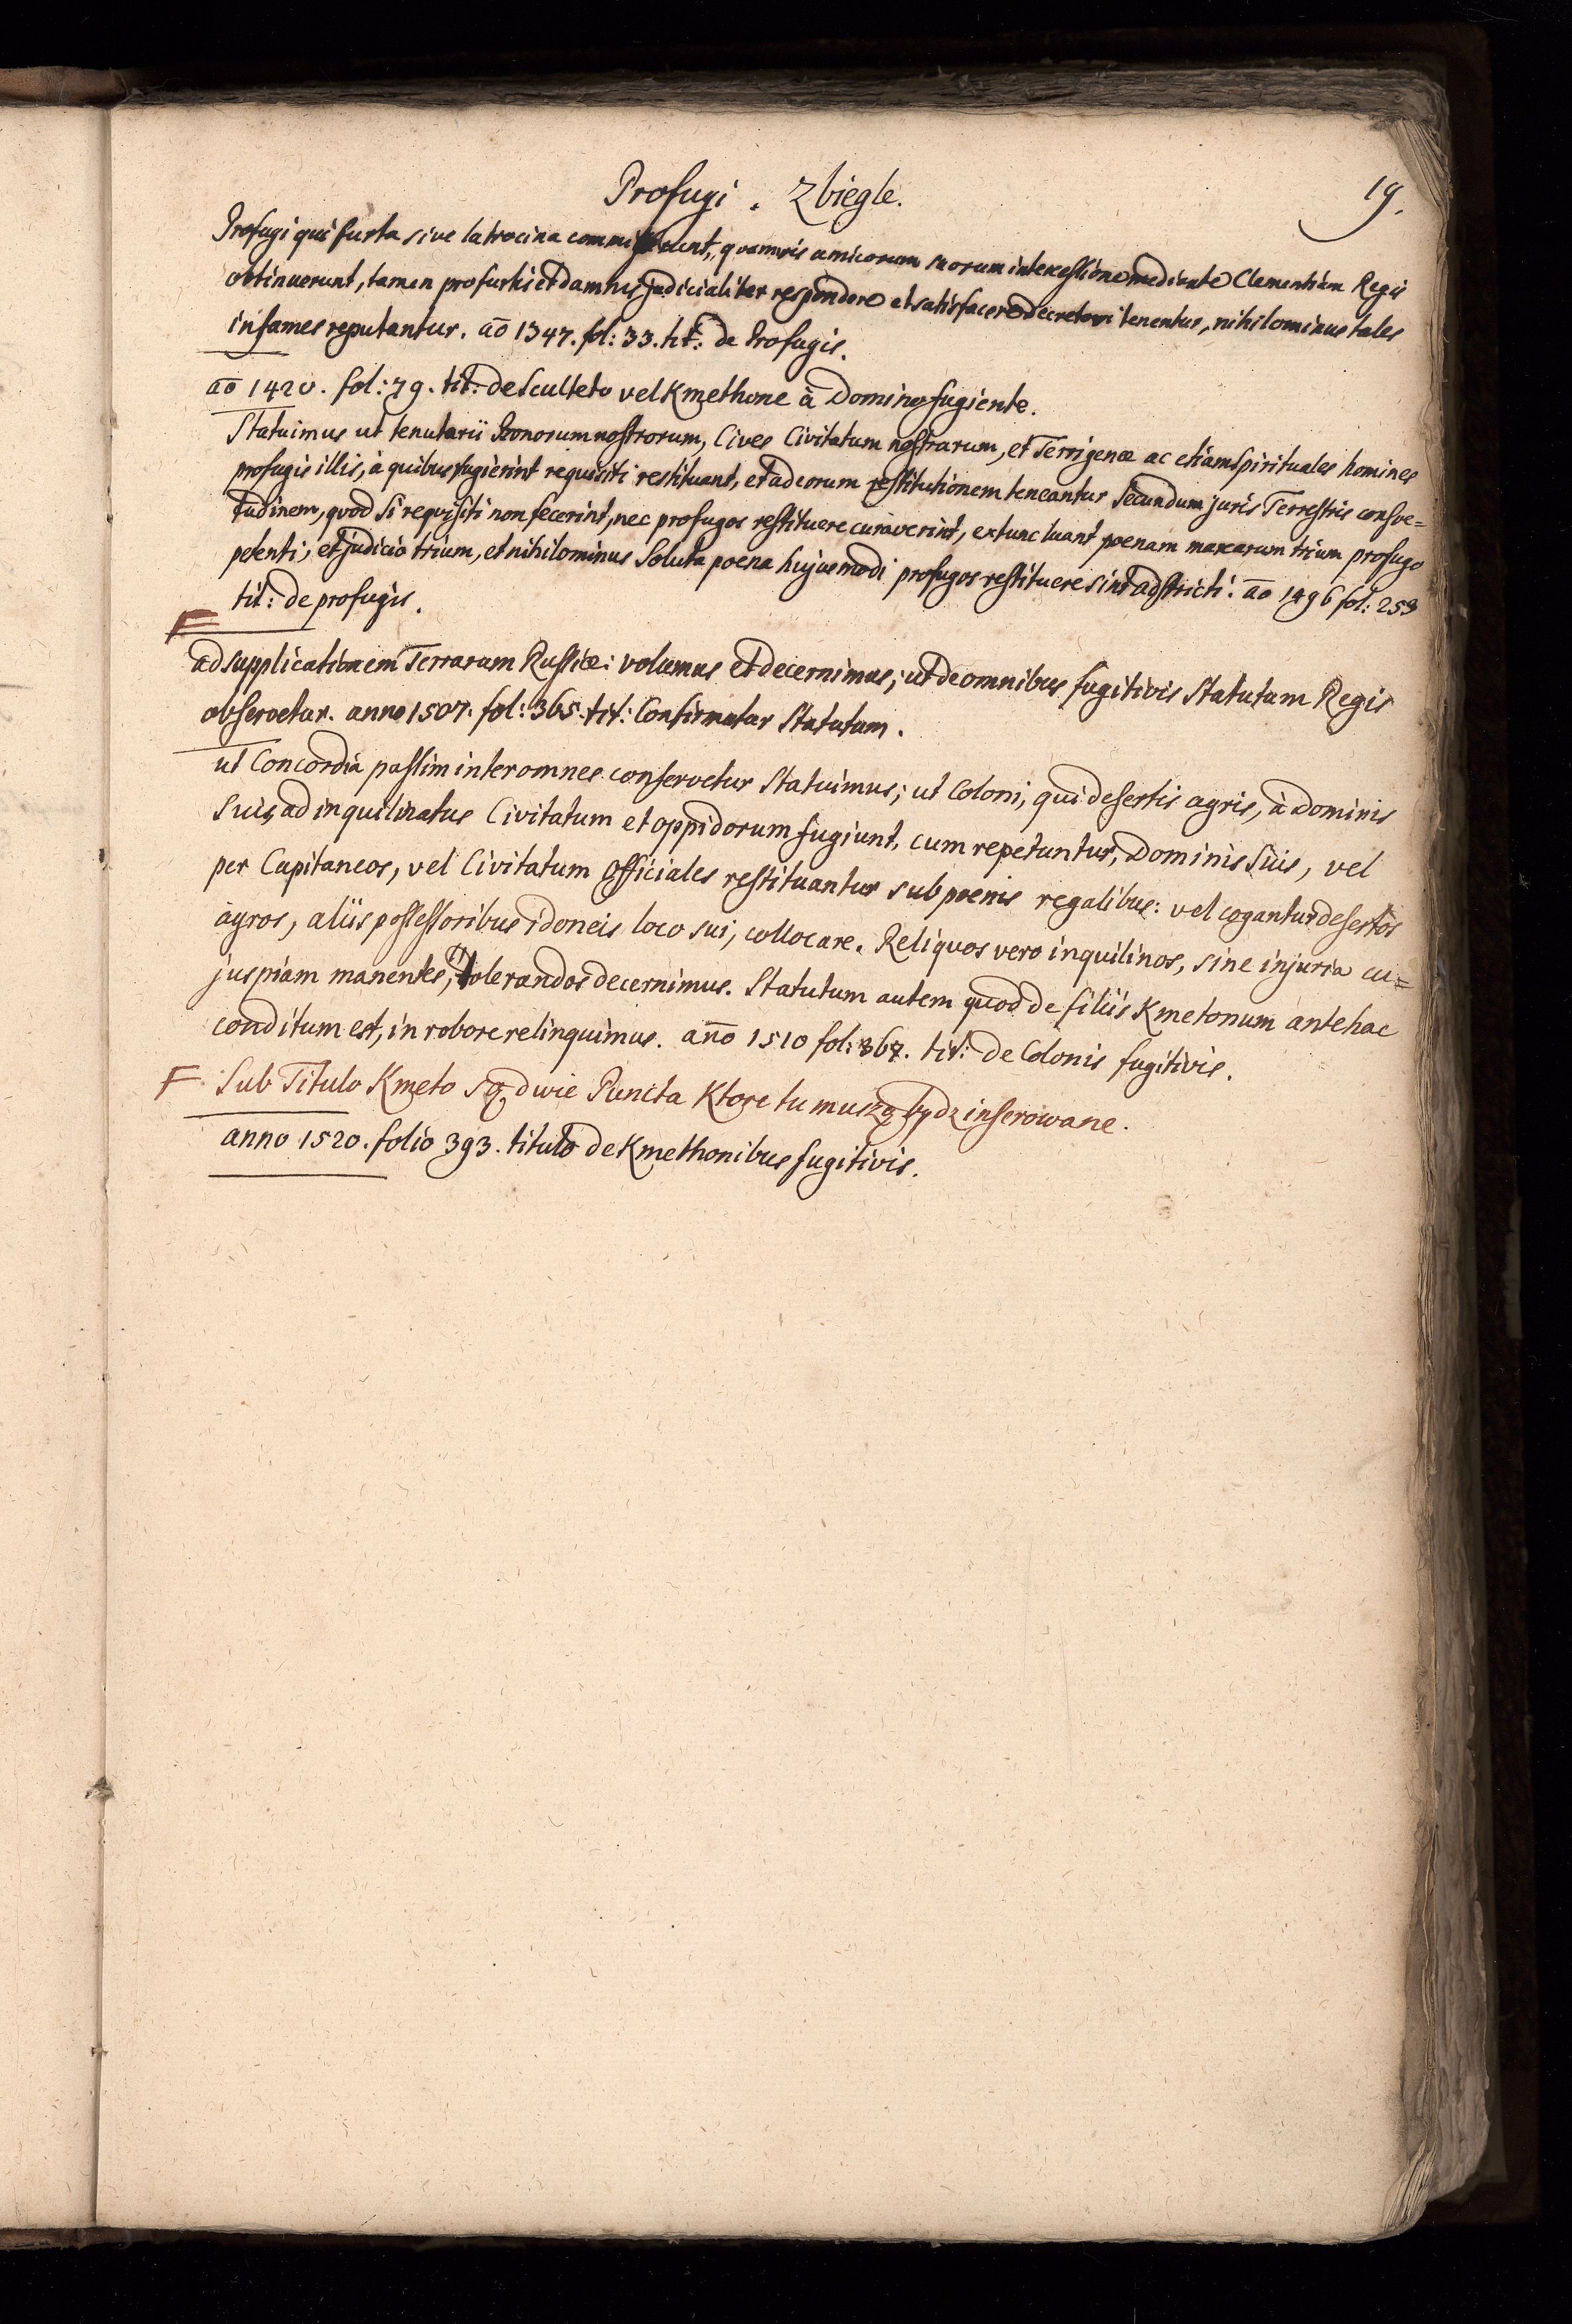 Profugi. Zbiegle.
19.
Profugi qui furta sive latrocina commiserunt, quamvis amicorum suorum intercessione mediante Clementiam Regis
obtinuerunt, tamen pro furtis et damnis judicialiter respondere et satisfacere tenentur, nihilominus tales
infames reputantur. ao 1347. fol: 33. tit: de Profugis.
ao 1420. fol: 79. tit: de Sculteto vel Kmethone à Domino fugiente.
Statuimus ut tenutarii Bonorum nostrorum, Cives Civitatum nostrarum, et Terrigenæ ac etiam Spirituales homines
profugis illis, à quibus fugierint requisiti restituant, et ad eorum restitutionem teneantur secundum juris Terrestris consve=
tudinem, quod Si requisiti non fecerint, nec profugos restituere curaverint, extunc luant poenam marcarum trium profugo
petenti, et judicio trium, et nihilominus Soluta poena hujusmodi profugos restituere sint adstricti. ao 1496 fol: 253
tit: de profugis.
F
ad supplicationem Terrarum Russiæ: volumus et decernimus; ut de omnibus fugitivis Statutum Regis
observetur. anno 1507. fol: 365. tit: Confirmatur Statutum.
ut Concordia passim inter omnes conservetur Statuimus; ut Coloni, qui desertis agris, à dominis
Suis, ad inquilinatus Civitatum et oppidorum fugiunt, cum repetuntur, Dominis Suis, vel
per Capitaneos, vel Civitatum Officiales restituantur sub poenis regalibus: vel cogantur desertos
agros, aliis possessoribus idoneis loco sui, collocare. Reliquos vero inquilinos, sine injuria cu=
juspiam manentes, tolerandos decernimus. Statutum autem quod de filiis Kmetonum antehac
conditum est, in robore relinquimus. año 1510 fol: 367. tit: De Colonis fugitivis.
F Sub Titulo Kmeto są dwie Puncta Ktore tu muszą bydz inserowane.
anno 1520. folio 393. titulo de Kmethonibus fugitivis.